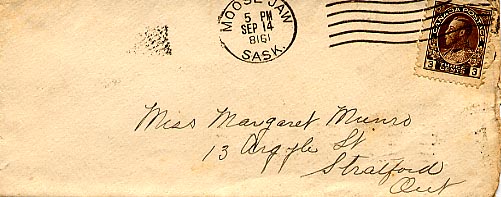 MOOSE JAW
5 PM
SEP 14
8161
SASK.
CANADA POSTAGE
3 THREE CENTS 3
Miss Margaret Munro
13 Argyle St
Stratford
Ont